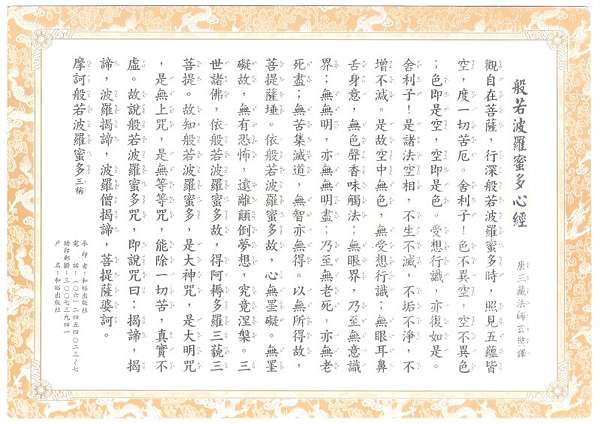 般若波羅蜜多心經
唐三藏法師玄奘譯
觀自在菩薩，行深般若波羅蜜多時，照見五蘊皆
空，度一切苦厄。舍利子！色不異空，空不異色
；色即是空，空即是色。受想行識，亦復如是。
舍利子！是諸法空相，不生不滅，不垢不淨，不
增不減。是故空中無色，無受想行識；無眼耳鼻
舌身意，無色聲香味觸法；無眼界，乃至無意識
界；無無明，亦無無明盡；乃至無老死，亦無老
死盡；無苦集滅道，無智亦無得。以無所得故，
菩提薩埵。依般若波羅蜜多故，心無罣礙。無罣
礙故，無有恐怖，遠離顛倒夢想，究竟涅槃。三
世諸佛，依般若波羅蜜多故，得阿耨多羅三藐三
菩提。故知般若波羅蜜多，是大神咒，是大明咒
，是無上咒，是無等等咒，能除一切苦，真實不
虛。故說般若波羅蜜多咒，即說咒曰：揭諦，揭
諦，波羅揭諦，波羅僧揭諦，菩提薩婆訶。
摩訶般若波羅蜜多 三稱
承印者：和裕出版社
電話：(○六)二四五四○二三~七
助印郵撥：三○○七三九四一
戶名：和裕出版社